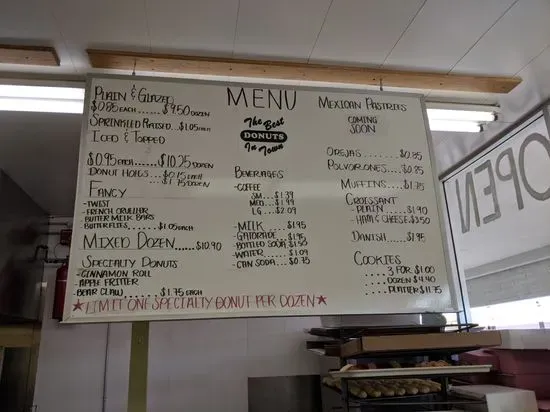 MENU
The Best
DONUTS
In Town
PLAIN & GLAZED
$0.85 EACH......$9.50 DOZEN
SPRINKLED RAISED..$1.05 EACH
ICED & TOPPED
$0.95 EACH......$10.25 DOZEN
DONUT HOLES.....$0.15 EACH
$1.75 DOZEN
FANCY
-TWIST
-FRENCH CRULLER
-BUTTER MILK BARS
-BUTTERFLIES..........$1.05 EACH
MIXED DOZEN........$10.90
SPECIALTY DONUTS
-CINNAMON ROLL
-APPLE FRITTER
-BEAR CLAW.......$1.75 EACH
★LIMIT ONE SPECIALTY DONUT PER DOZEN★
BEVERAGES
-COFFEE
SM.....$1.39
MED....$1.99
LG.....$2.09
-MILK.........$1.95
-GATORADE....$1.95
-BOTTLED SODA.$1.50
-WATER.......$1.09
-CAN SODA....$0.75
MEXICAN PASTRIES
COMING
SOON
OREJAS..........$0.85
POLVORONES......$0.85
MUFFINS.........$1.75
CROISSANT
-PLAIN........$1.90
-HAM & CHEESE..$3.50
DANISH.......$1.95
COOKIES
.....3 FOR $1.00
....DOZEN $4.40
....PLATTER $11.75
OPEN